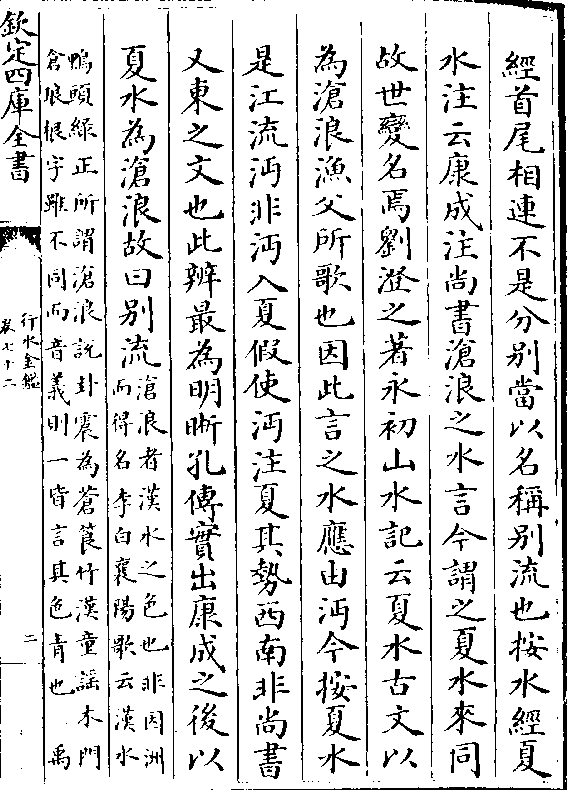 經首尾相連不是分别當以名稱别流也按水經夏
水注云康成注尚書滄浪之水言今謂之夏水來同
故世變名焉劉澄之著永初山水記云夏水古文以
為滄浪漁父所歌也因此言之水應由沔今按夏水
是江流沔非沔入夏假使沔注夏其勢西南非尚書
又東之文也此辨最為明晰孔傳實出康成之後以
夏水為滄浪故曰别流滄浪者漢水之色也非因洲
而得名李白襄陽歌云漢水
鴨頭緑正所謂滄浪説卦震為蒼筤竹漢童謡木門
倉琅根字雖不同而音義則一皆言其色青也 禹
欽定四庫全書
行水金鑑
卷七十二
二